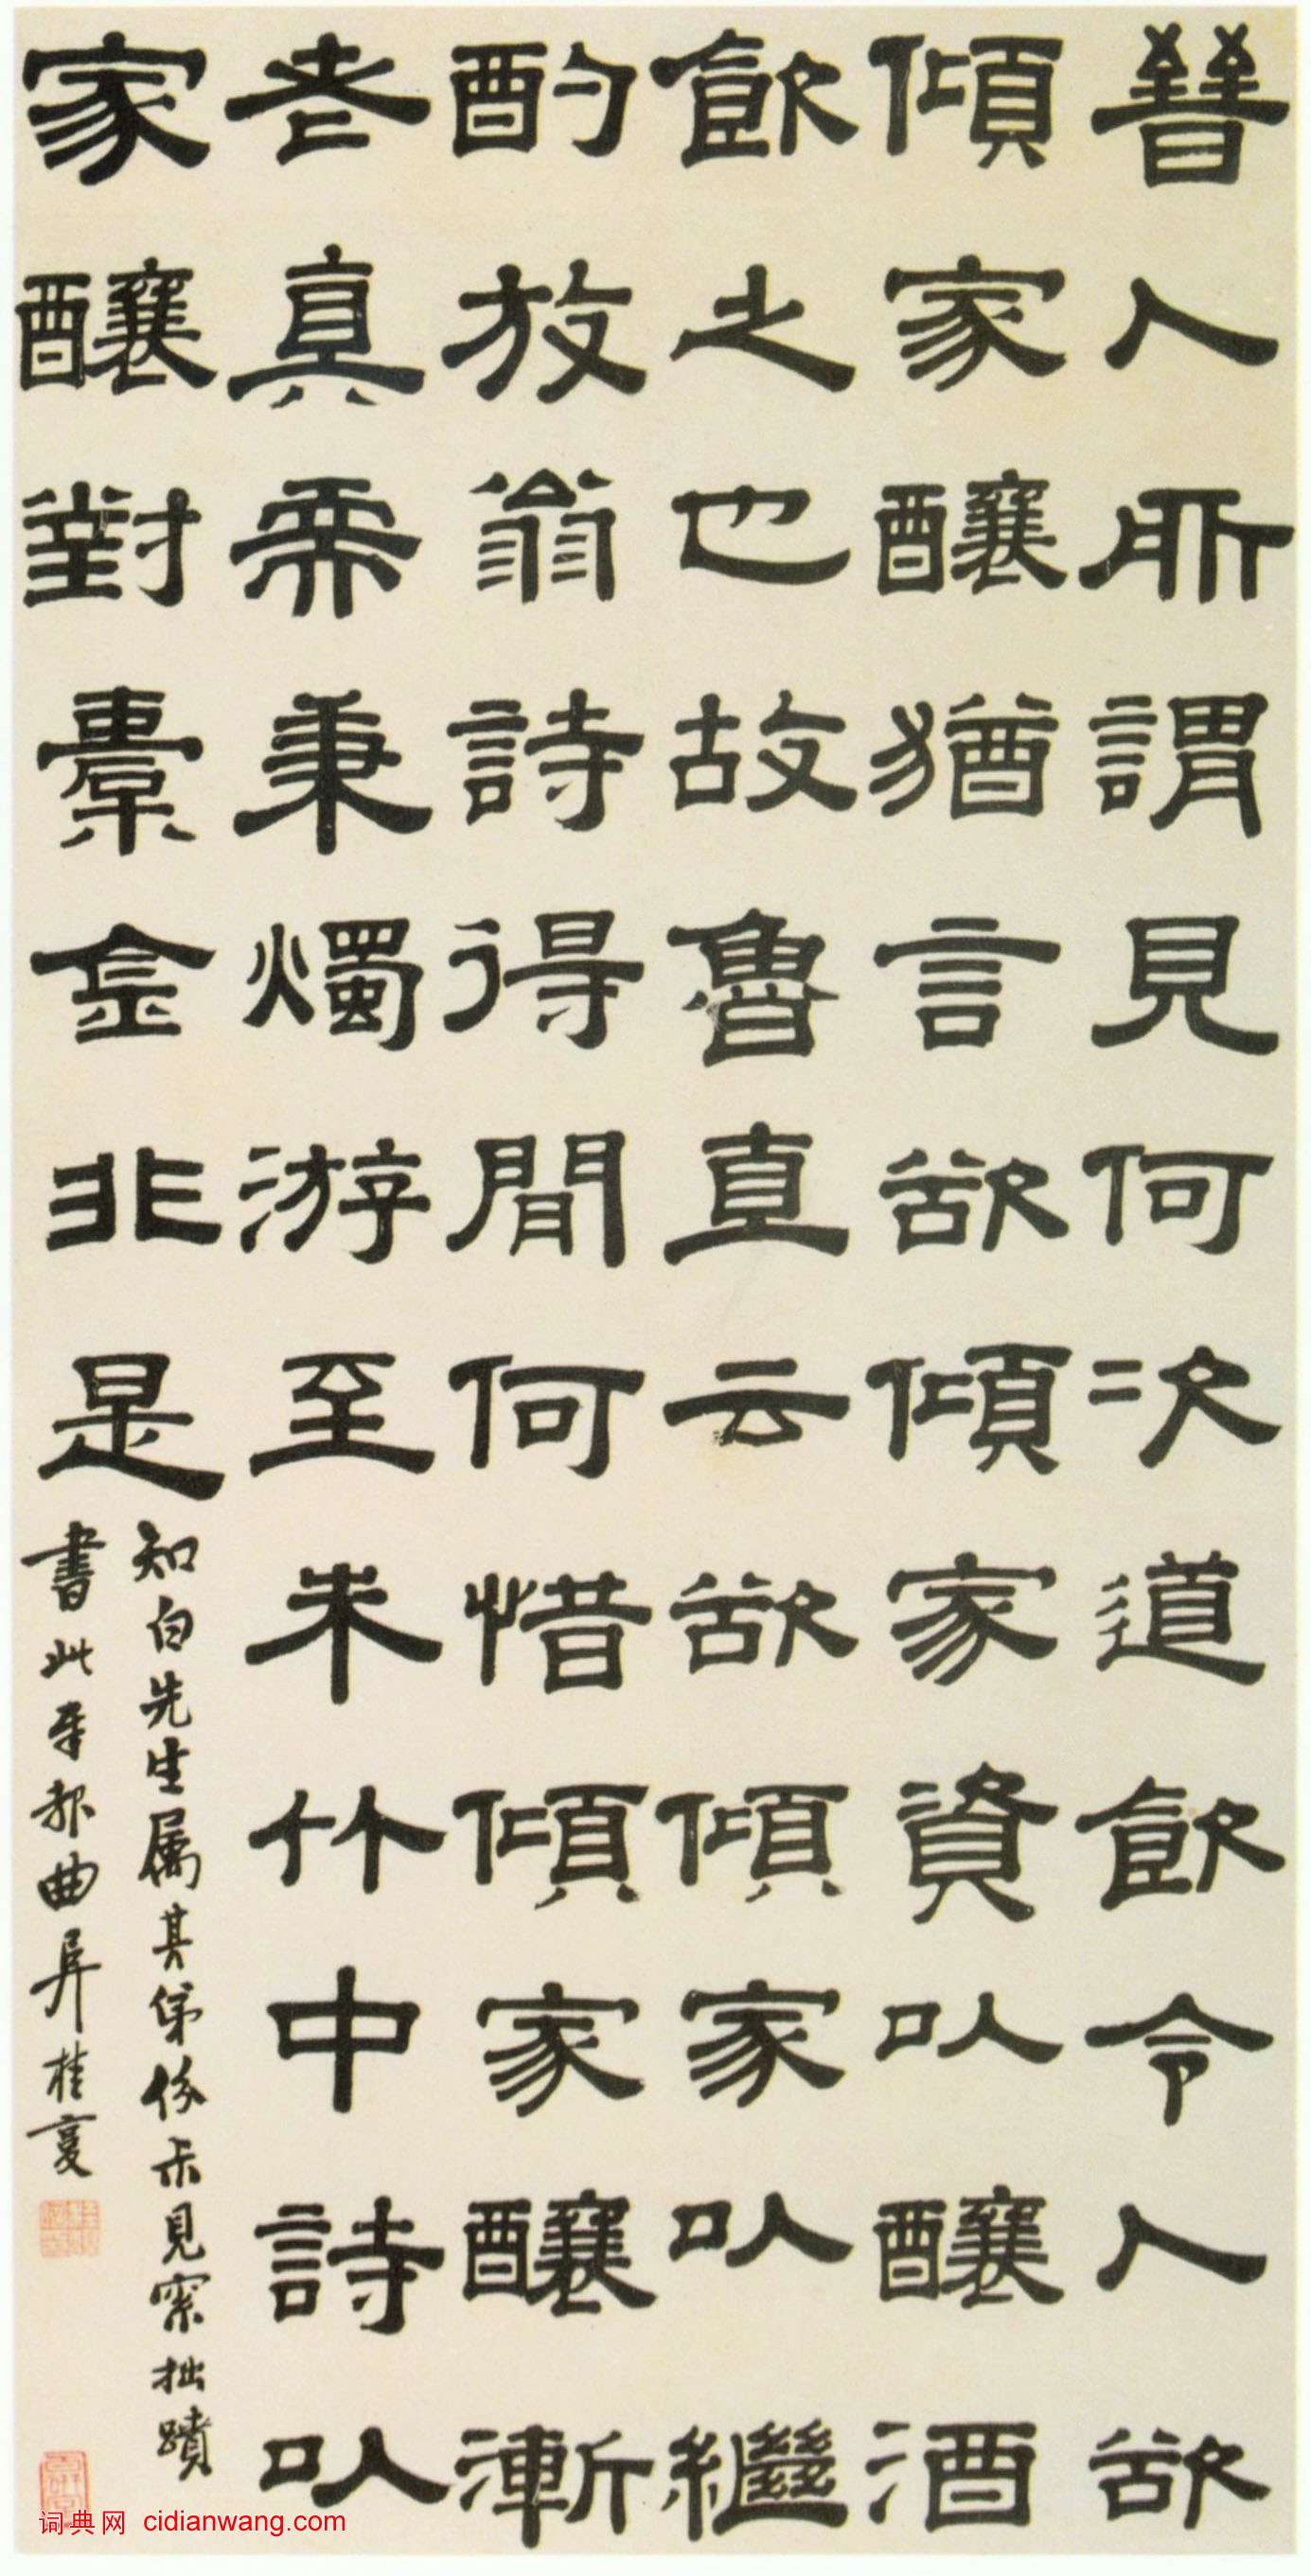 晉人所謂見何次道飲令人欲
傾家釀猶言欲傾家資以釀酒
飲之也故魯直云欲傾家以繼
酌放翁詩得閒何惜傾家釀漸
老真需秉燭游至朱竹中詩以
家釀對橐金非是
知白先生屬其弟份示見索拙蹟
書此奉報曲阜桂馥
词典网 cidianwang.com